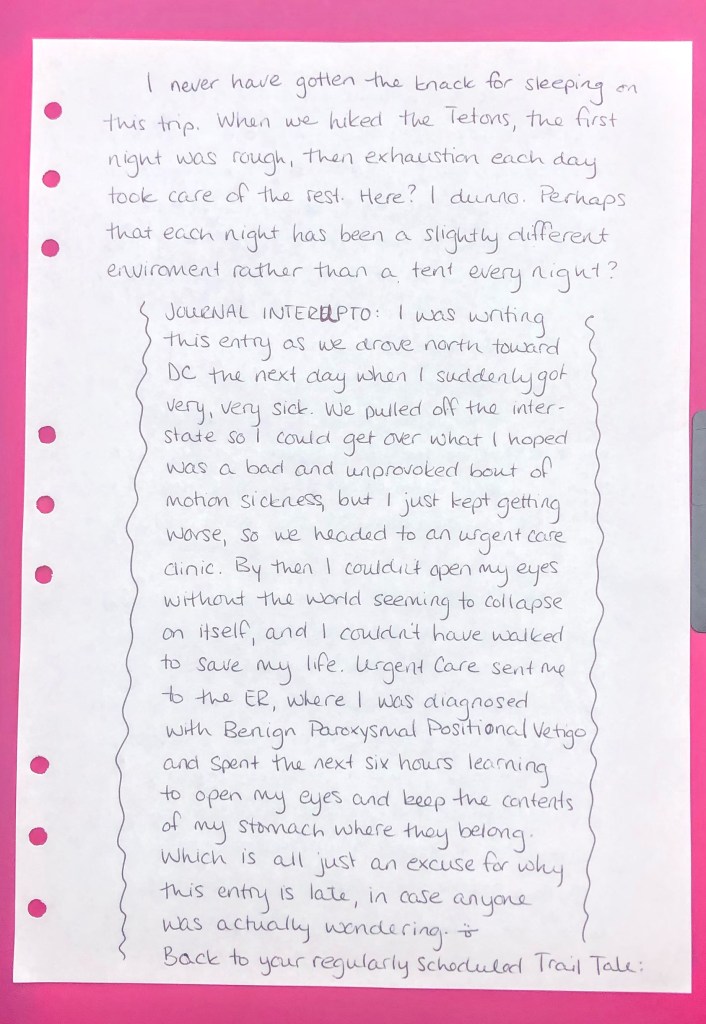 I never have gotten the knack for sleeping on
this trip. When we hiked the Tetons, the first
night was rough, then exhaustion each day
took care of the rest. Here? I dunno. Perhaps
that each night has been a slightly different
enviroment rather than a tent every night?
JOURNAL INTERUPTO: I was writing
this entry as we drove north toward
DC the next day when I suddenly got
very, very sick. We pulled off the inter-
state so I could get over what I hoped
was a bad and unprovoked bout of
motion sickness, but I just kept getting
worse, so we headed to an urgent care
clinic. By then I couldn't open my eyes
without the world seeming to collapse
on itself, and I couldn't have walked
to save my life. Urgent Care sent me
to the ER, where I was diagnosed
with Benign Paroxysmal Positional Vetigo
and spent the next six hours learning
to open my eyes and keep the contents
of my stomach where they belong.
Which is all just an excuse for why
this entry is late, in case anyone
was actually wondering.
Back to your regularly scheduled Trail Tale: